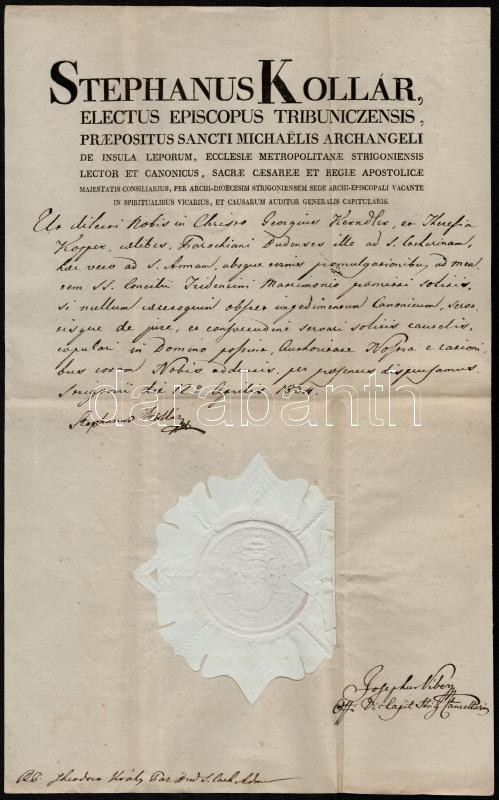 STEPHANUS KOLLÁR,
ELECTUS EPISCOPUS TRIBUNICZENSIS,
PRÆPOSITUS SANCTI MICHAËLIS ARCHANGELI
DE INSULA LEPORUM, ECCLESIÆ METROPOLITANÆ STRIGONIENSIS
LECTOR ET CANONICUS, SACRÆ CÆSAREÆ ET REGIÆ APOSTOLICÆ
MAJESTATIS CONSILIARIUS, PER ARCHI-DIOECESIM STRIGONIENSEM SEDE ARCHI-EPISCOPALI VACANTE
IN SPIRITUALIBUS VICARIUS, ET CAUSARUM AUDITOR GENERALIS CAPITULARIS.
Ut dilecti Nobis in Christo Georgius Kerndler, et Theresia
cælibes, Parochiani Budenses ille ad S. Catharinam,
hæc vero ad S. Annam, absque ternis promulgationibus, ad men-
tem SS. Concilii Tridentini Matrimonio
si nullum obstet impedimentum Canonicum, serva-
tisque de jure, et consvetudine servari solitis cautelis,
copulari in Domino possint, Authoritate Nostra e rationi-
bus coram Nobis adductis, per præsentes dispensamus.
Strigonii die 12ª Aprilis 1834.
Stephanus Kollár
darabanth
Josephus
Theodoro Király